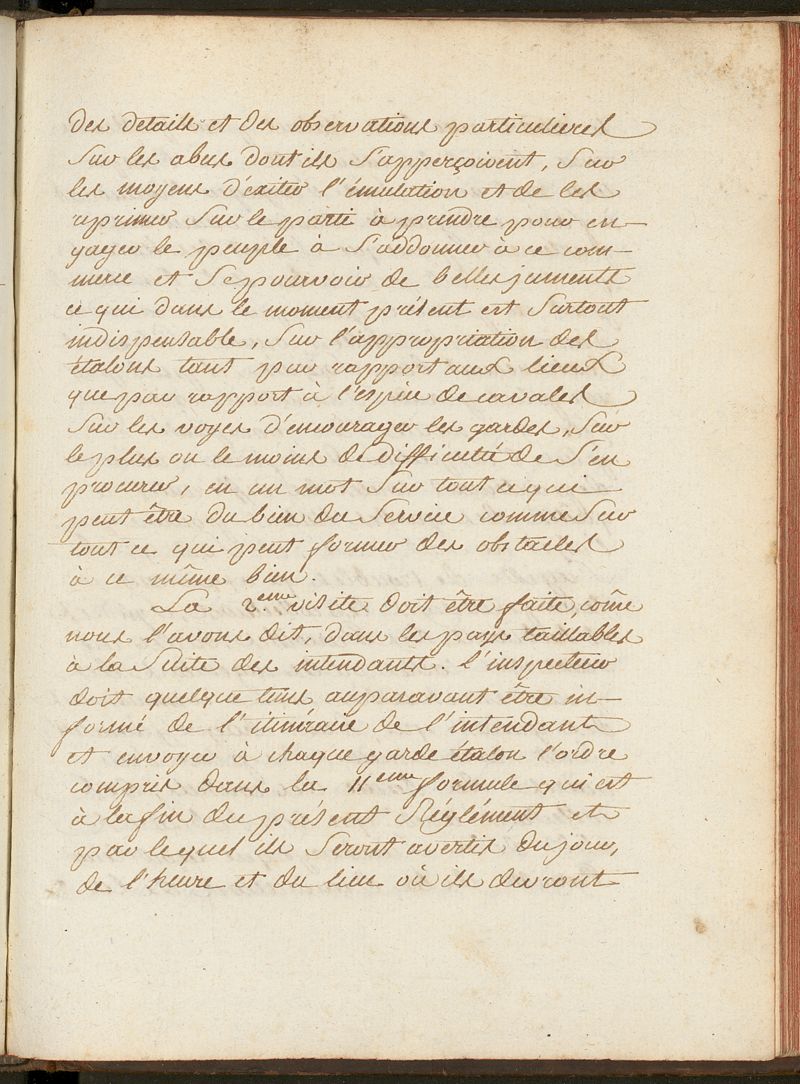 des details et des observations particulieres
Sur les abus dont ils S'apperçoivent, Sur
les moyens d'exiter l'émulation et de les
reprimer Sur le parti à prendre pour en-
gager le peuple à S'addonner à ce com-
merce et Se pourvoir de belles juments
ce qui dans le moment présent est Surtout
indispensable, Sur l'appropriation des
étalons tant par rapport aux lieux
que par rapport à l'espece de cavales
Sur les voyes d'encourager les gardes, Sur
le plus ou le moins de difficulté de S'en
procurer, en un mot Sur tout ce qui
peut être du bien du Service comme Sur
tout ce qui peut former des obstacles
à ce même bien.
La 2.eme visite doit être faite, comē
nous l'avons dit, dans les pays taillables
à la Suite des intendants. l'inspecteur
doit quelque tems auparavant être in-
formé de l'itinéraire de l'intendant
et envoyer à chaque garde étalon l'ordre
compris dans la 11eme formule qui est
à la fin du présent Réglément et
par lequel ils Seront avertis du jour,
de l'heure et du lieu où ils devront